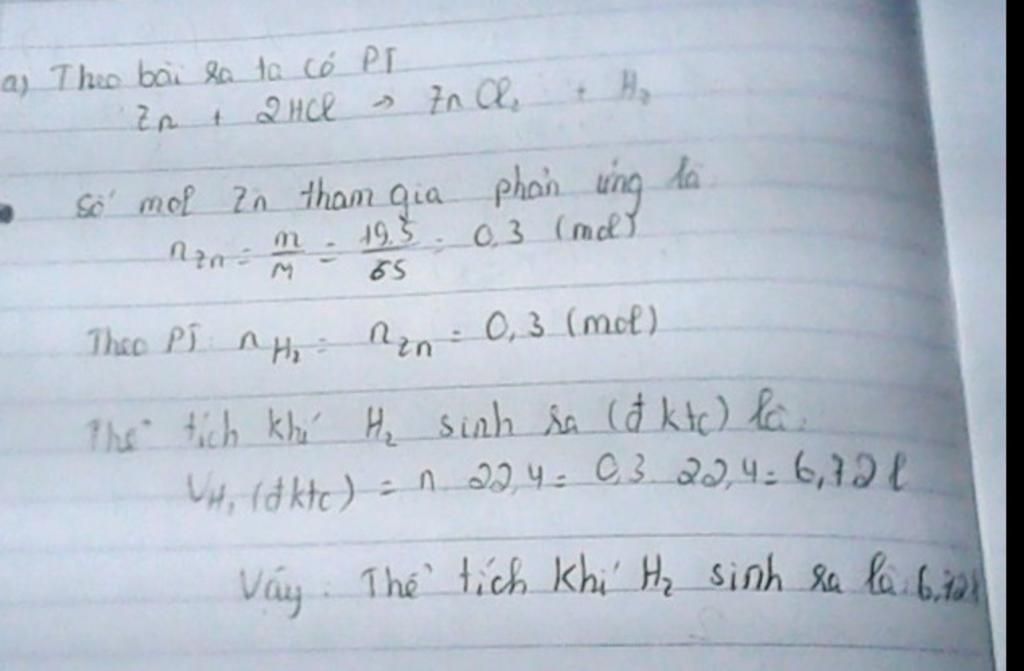 a) Theo bài ra ta có PT
Zn + 2HCl → ZnCl₂ + H₂
Số mol Zn tham gia phản ứng là
nZn = m/M = 19,5/65 = 0,3 (mol)
Theo PT: nH₂ = nZn = 0,3 (mol)
Thể tích khí H₂ sinh ra (đktc) là:
VH₂ (đktc) = n . 22,4 = 0,3 . 22,4 = 6,72 l
Vậy : Thể tích khí H₂ sinh ra là : 6,72l